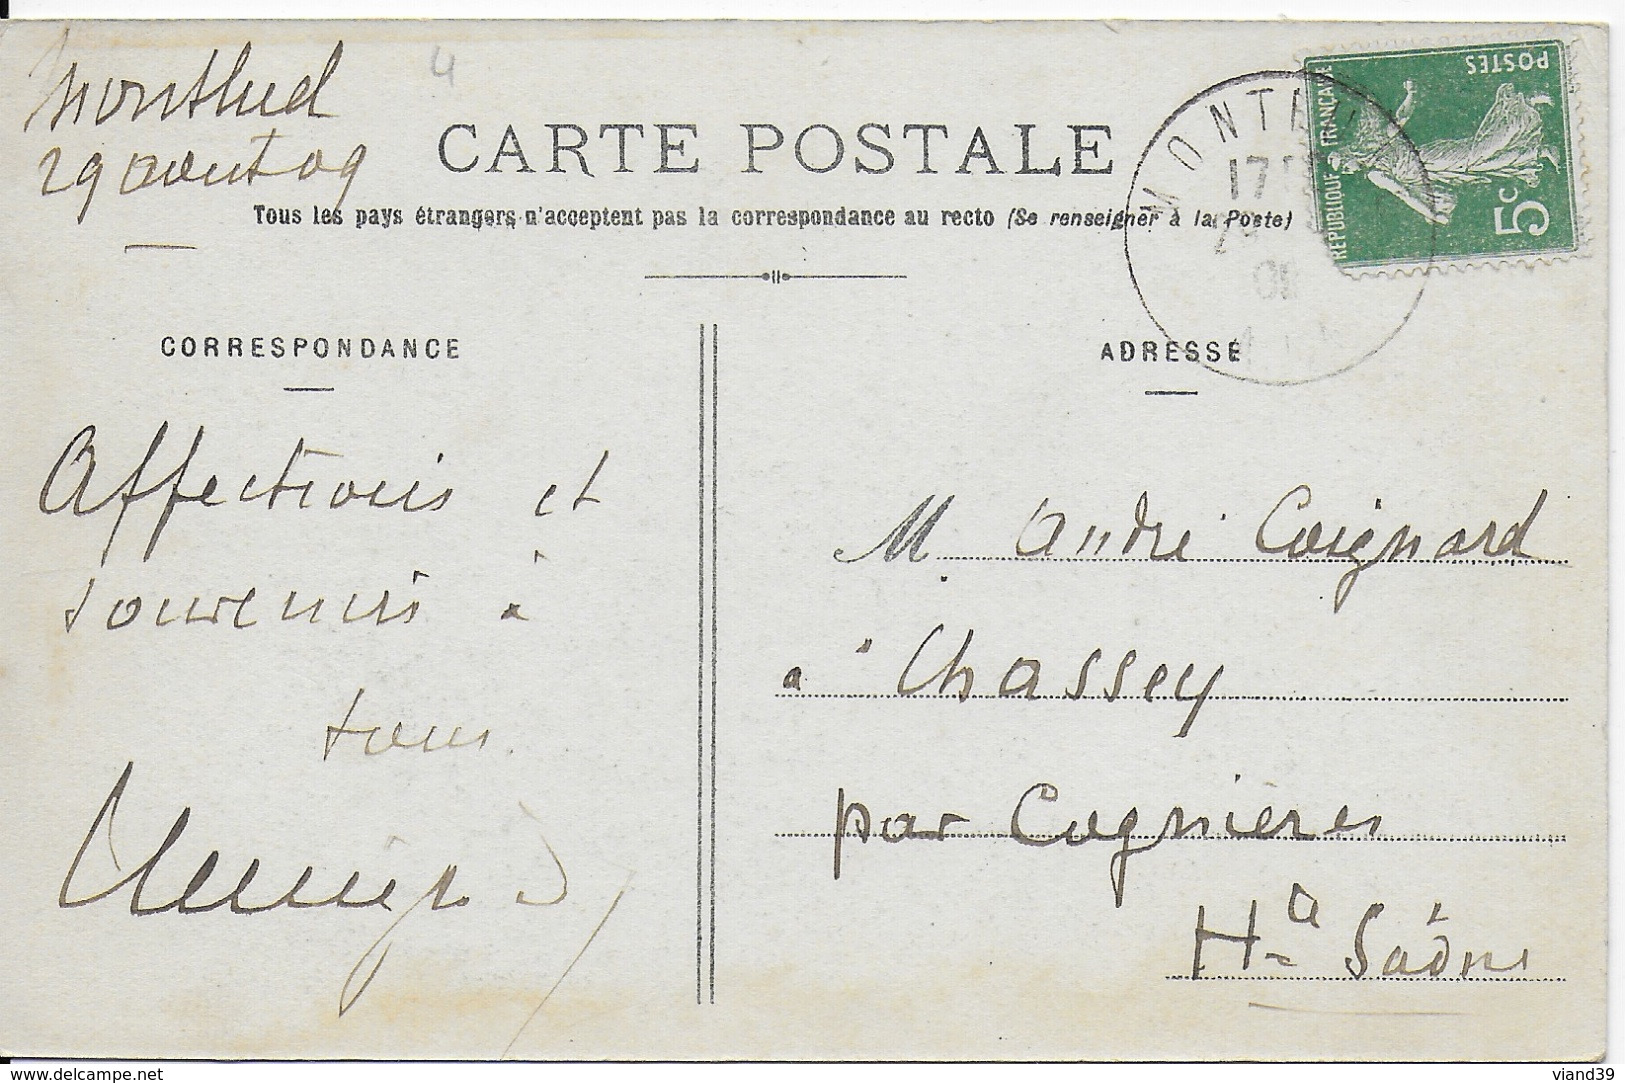 Montluel
29 aout 09
4
CARTE POSTALE
Tous les pays étrangers n'acceptent pas la correspondance au recto (Se renseigner à la Poste)
REPUBLIQUE FRANÇAISE
POSTES
5c
17
CORRESPONDANCE
Affections et
souvenirs à
tous
ADRESSE
M. André Coignard
à Chassey
par Cognières
Hte Saône
www.delcampe.net
viand39